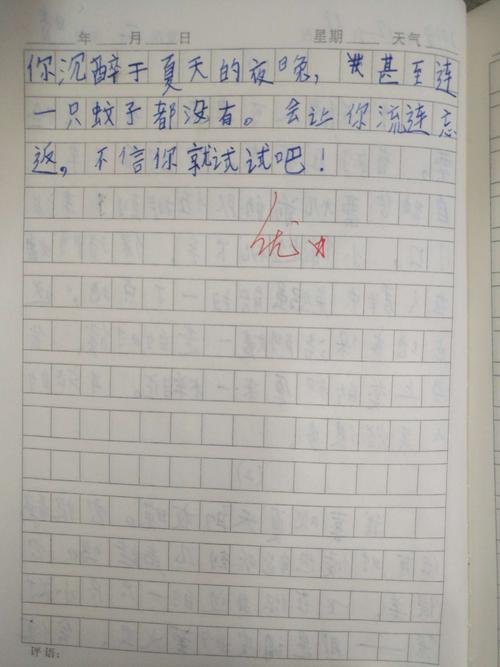 年 月 日 星期 天气
你沉醉于夏天的夜晚，甚至连
一只蚊子都没有。会让你流连忘
返，不信你就试试吧！
优
评语：